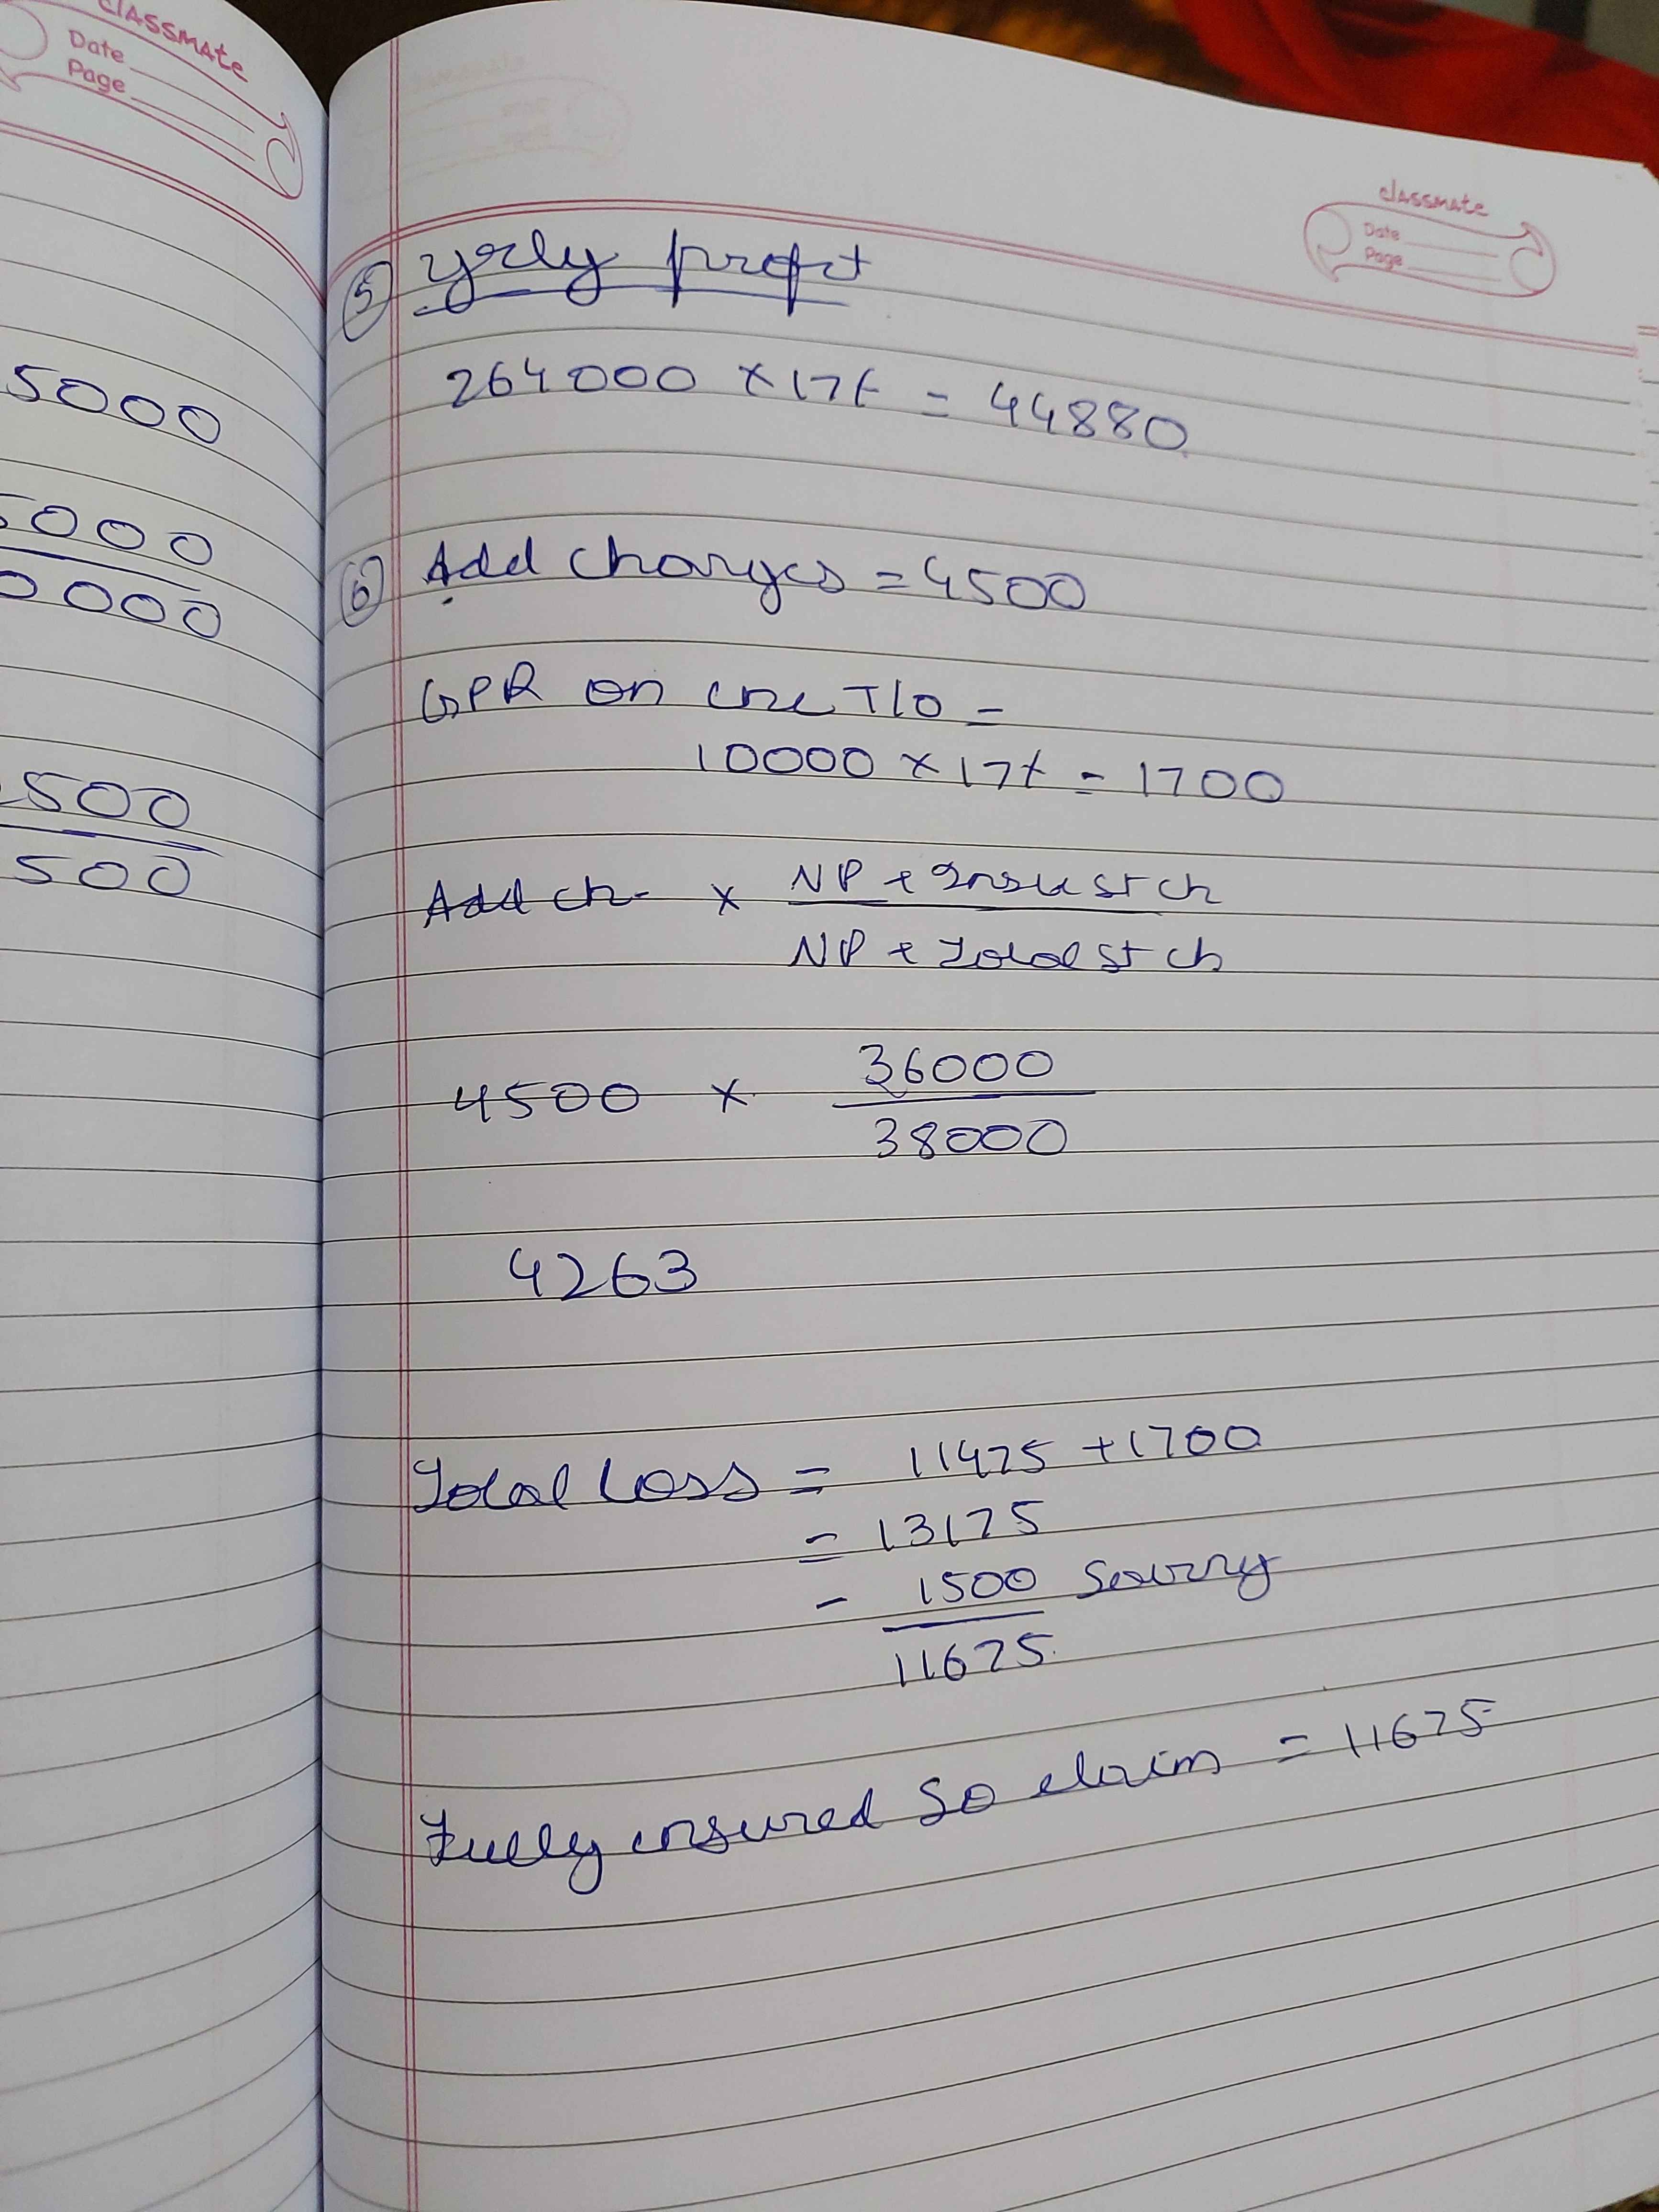 classmate
Date
Page
5000
5000
0000
500
500
classmate
Date
Page
5 yrly profit
264000 × 17% = 44880
6 Add charges = 4500
GPR on inc T/O =
10000 × 17% = 1700
Add ch × NP + Insu st ch
NP + Total st ch
4500 × 36000
38000
4263
Total Loss = 11475 + 1700
= 13175
- 1500 Saving
11675
Fully insured So claim = 11675